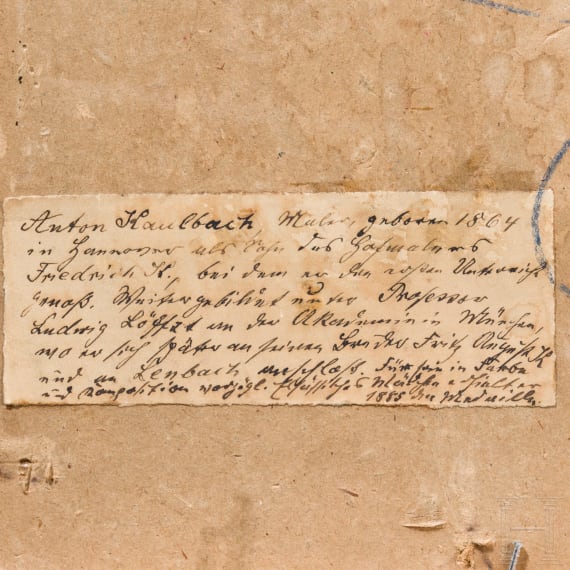 Anton Kaulbach, Maler, geboren 1864
in Hannover als Sohn des Hofmalers
Friedrich K., bei dem er den ersten Unterricht
genoß. Weitergebildet unter Professor
Ludwig Löfftz an der Akademie in München,
wo er sich später an seinen Bruder Fritz August K
und an Lenbach anschloß. Für sein in Farbe
und Komposition vorzügl. Mädchen erhielt er
1885 die Medaille.